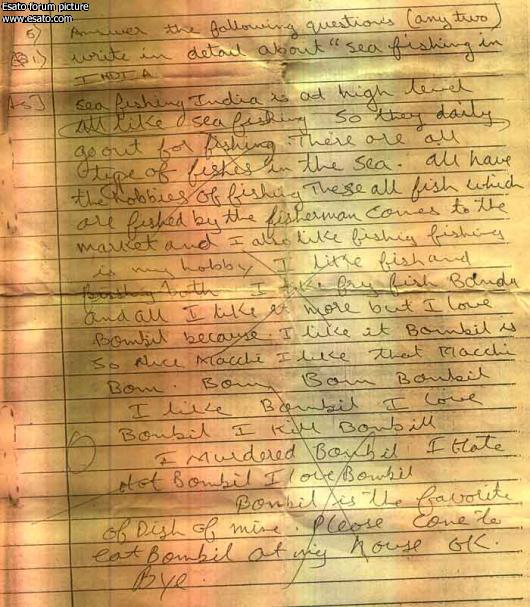 Esato forum picture
www.esato.com
5) Answer the following questions (any two)
Q1) write in detail about "sea fishing in
INDIA
Ans] sea fishing India is ad high level
all like sea fishing so they daily
go out for fishing. There are all
type of fishes in the sea. all have
the hobbies of fishing These all fish which
are fished by the fisherman comes to the
market and I also like fishig fishing
is my hobby I like fish and
both I like fry fish Banda
and all I like it more but I love
Bombil because I like it Bombil is
so Nice Macchi I like that Macchi
Bom. Bom Bom Bombil
I like Bombil I love
Bombil I Kill Bombill
I Murdered Bombil I Hate
Not Bombil I love Bombil
Bombil is the favorite
of Dish of mine. Please Come to
eat Bombil at my House OK.
Bye.